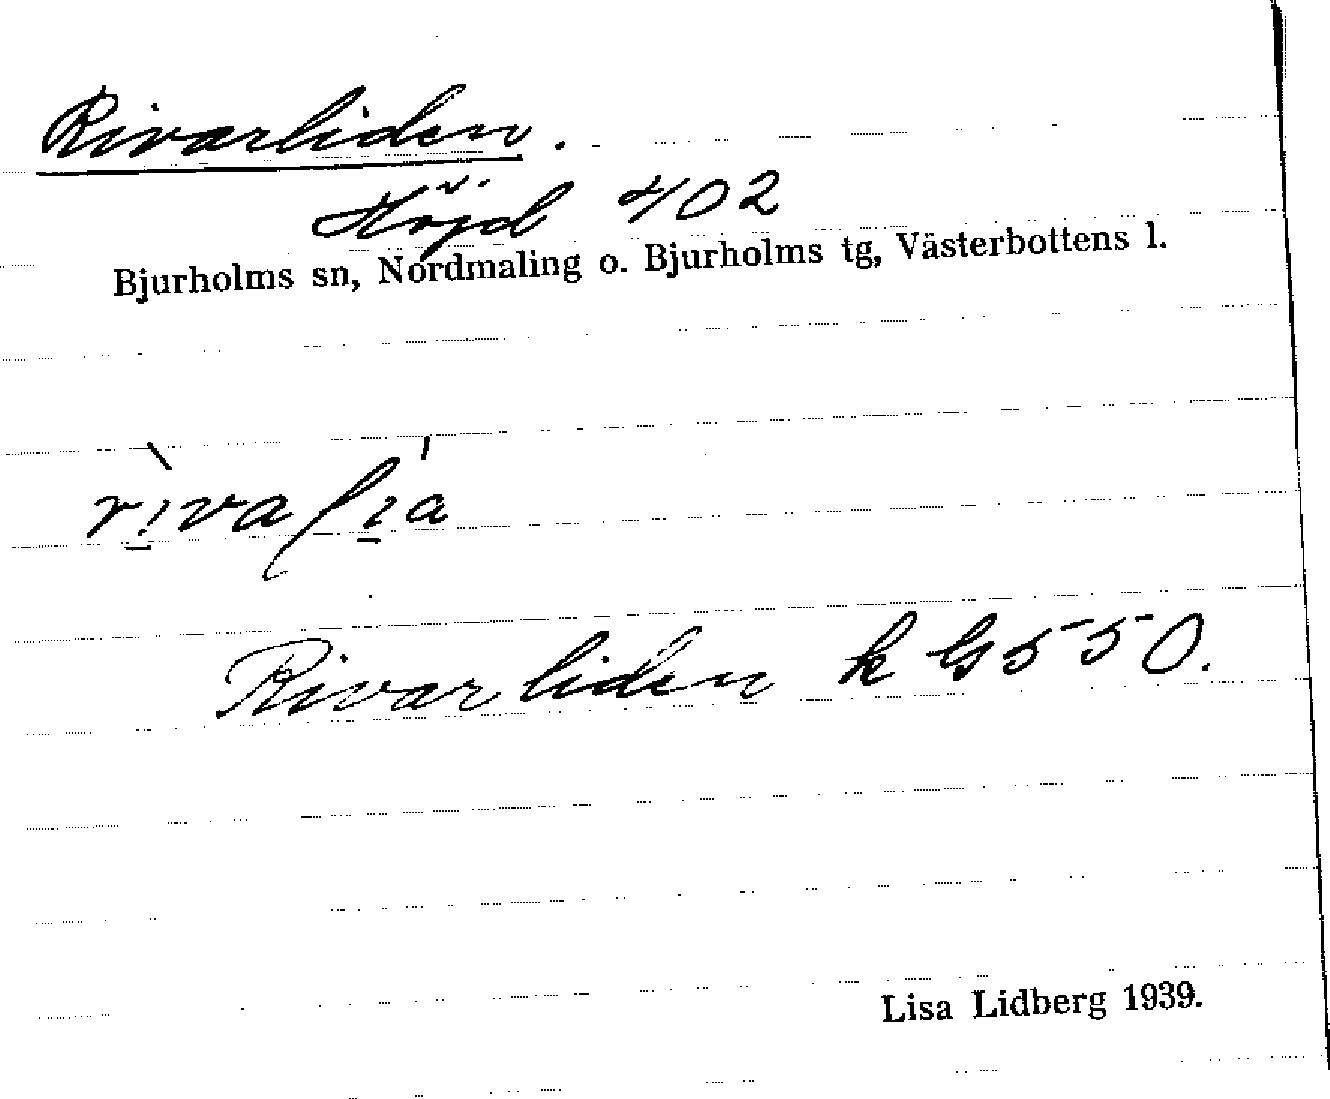 Rivarliden.
Höjd 402
Bjurholms sn, Nordmaling o. Bjurholms tg, Västerbottens l.
Rivarliden k G550.
Lisa Lidberg 1939.